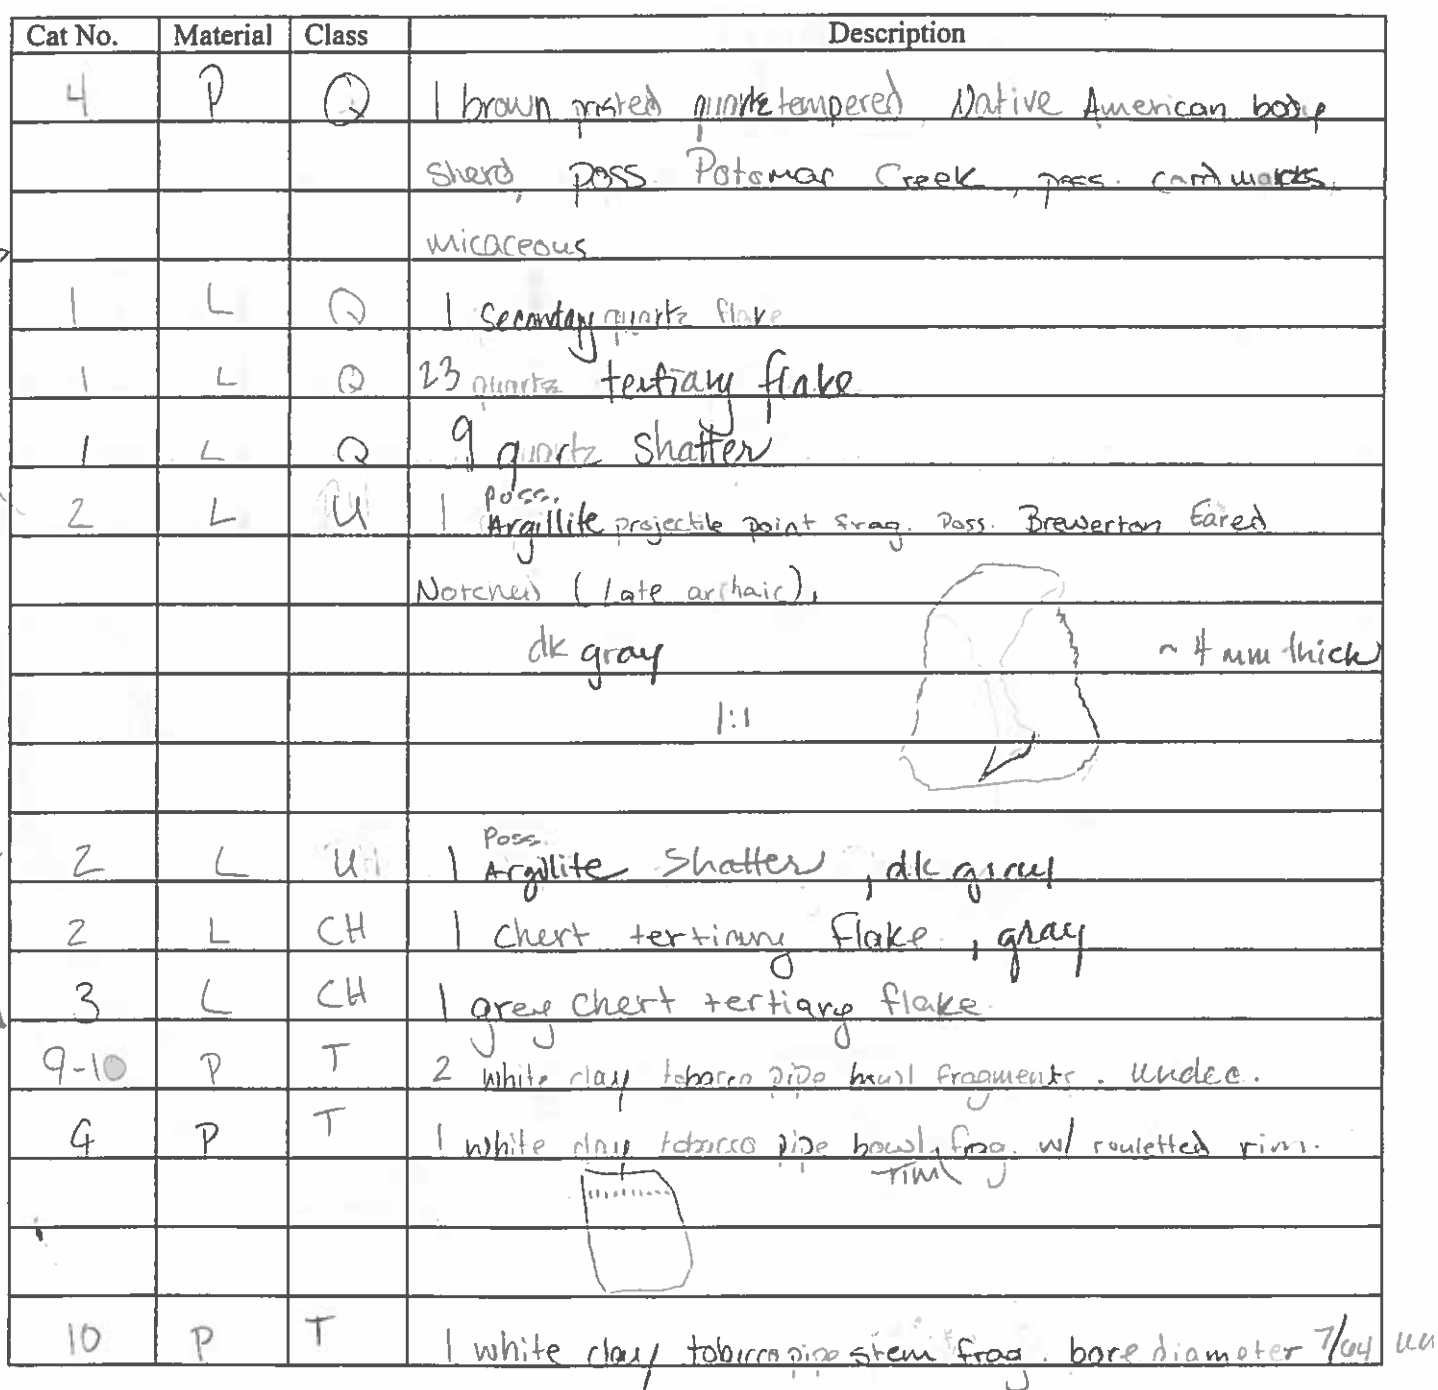 Cat No. Material Class Description
4 P Q 1 brown pasted quartz tempered Native American body
sherd, poss. Potomac Creek, poss. cord marks,
micaceous
1 L Q 1 Secondary quartz flake
1 L Q 23 quartz tertiary flake
1 L Q 9 quartz shatter
poss.
2 L U 1 Argillite projectile point frag. Poss. Brewerton Eared
Notched (Late archaic),
dk gray ~ 4 mm thick
1:1
Poss.
2 L U 1 Argillite Shatter, dk gray
2 L CH 1 chert tertiary flake, gray
3 L CH 1 grey chert tertiary flake
9-10 P T 2 white clay tobacco pipe bowl fragments. Undec.
9 P T 1 white clay tobacco pipe bowl frag. w/ rouletted rim.
rim
10 P T 1 white clay tobacco pipe stem frag. bore diameter 7/64